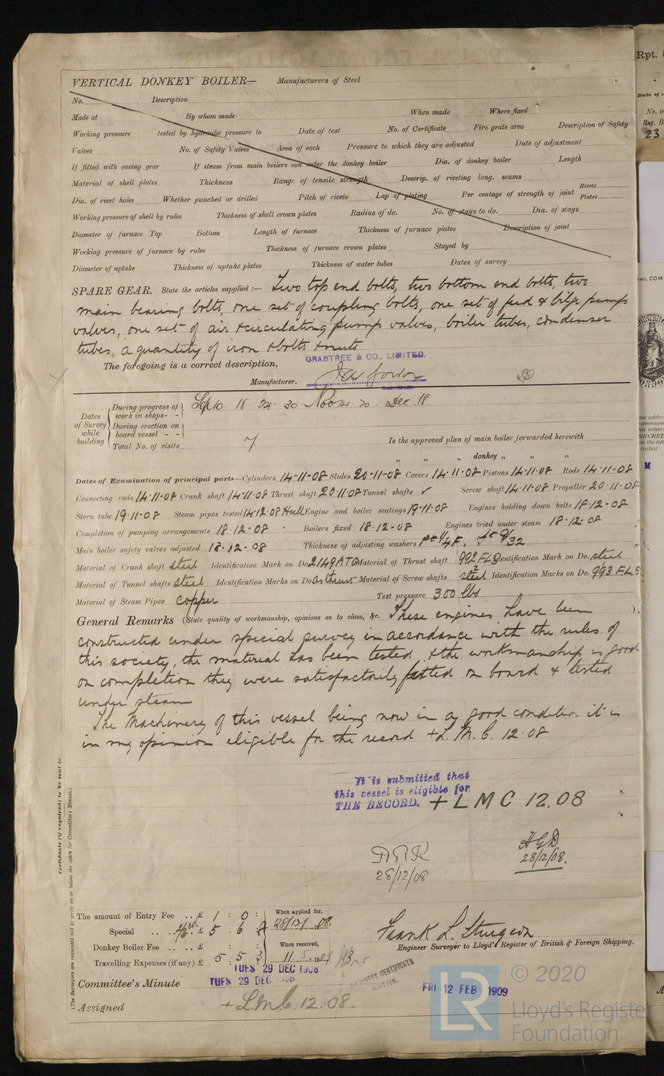 VERTICAL DONKEY BOILER— Manufacturers of Steel
No. Description
Made at By whom made When made Where fixed
Working pressure tested by hydraulic pressure to Date of test No. of Certificate Fire grate area Description of Safety
Valves No. of Safety Valves Area of each Pressure to which they are adjusted Date of adjustment
If fitted with easing gear If steam from main boilers can enter the donkey boiler Dia. of donkey boiler Length
Material of shell plates Thickness Range of tensile strength Descrip. of riveting long. seams
Dia. of rivet holes Whether punched or drilled Pitch of rivets Lap of plating Per centage of strength of joint Rivets Plates
Working pressure of shell by rules Thickness of shell crown plates Radius of do. No. of stays to do. Dia. of stays
Diameter of furnace Top Bottom Length of furnace Thickness of furnace plates Description of joint
Working pressure of furnace by rules Thickness of furnace crown plates Stayed by
Diameter of uptake Thickness of uptake plates Thickness of water tubes Dates of survey
SPARE GEAR. State the articles supplied :— Two top end bolts, two bottom end bolts, two
main bearing bolts, one set of coupling bolts, one set of feed & bilge pump
valves, one set of air & circulating pump valves, boiler tubes, condenser
tubes, a quantity of iron & bolts & nuts
The foregoing is a correct description,
CRABTREE & CO., LIMITED.
Manufacturer.
Dates of Survey while building
During progress of work in shops - - Sep 10 18 24 30 Dec 18
During erection on board vessel - -
Total No. of visits 7 Is the approved plan of main boiler forwarded herewith
" " " donkey " " "
Dates of Examination of principal parts—Cylinders 14·11·08 Slides 20·11·08 Covers 14·11·08 Pistons 14·11·08 Rods 14·11·08
Connecting rods 14·11·08 Crank shaft 14·11·08 Thrust shaft 20·11·08 Tunnel shafts ✓ Screw shaft 14·11·08 Propeller 20·11·08
Stern tube 19·11·08 Steam pipes tested 14·12·08 Hull Engine and boiler seatings 19·11·08 Engines holding down bolts 18·12·08
Completion of pumping arrangements 18·12·08 Boilers fixed 18·12·08 Engines tried under steam 18·12·08
Main boiler safety valves adjusted 18·12·08 Thickness of adjusting washers
Material of Crank shaft steel Identification Mark on Do. 2149ATA Material of Thrust shaft Identification Mark on Do. 992 FLS
Material of Tunnel shafts steel Identification Marks on Do. as thrust Material of Screw shafts steel Identification Marks on Do. 993 F.L.S
Material of Steam Pipes copper Test pressure 300 lbs
General Remarks (State quality of workmanship, opinions as to class, &c. These engines have been
constructed under special survey in accordance with the rules of
this society, the material has been tested & the workmanship is good
on completion they were satisfactorily fitted on board & tested
under steam
The Machinery of this vessel being now in a good condition it is
in my opinion eligible for the record + L.M.C. 12·08
It is submitted that
this vessel is eligible for
THE RECORD. + LMC 12.08
28/12/08
28/12/08.
The amount of Entry Fee .. £ 1 : 0 : When applied for,
Special .. .. £ 5 : 6 :
Donkey Boiler Fee .. .. £ : : When received,
Travelling Expenses (if any) £ 5 : 5 : 3
Frank L. Sturgeon
Engineer Surveyor to Lloyd's Register of British & Foreign Shipping.
TUES 29 DEC 1908
Committee's Minute TUES 29 DEC 1908
FRI 12 FEB 1909
Assigned + L.M.C. 12.08.
MACHINERY CERTIFICATE WRITTEN.
LR © 2020
Lloyd's Register
Foundation
Rpt.
23